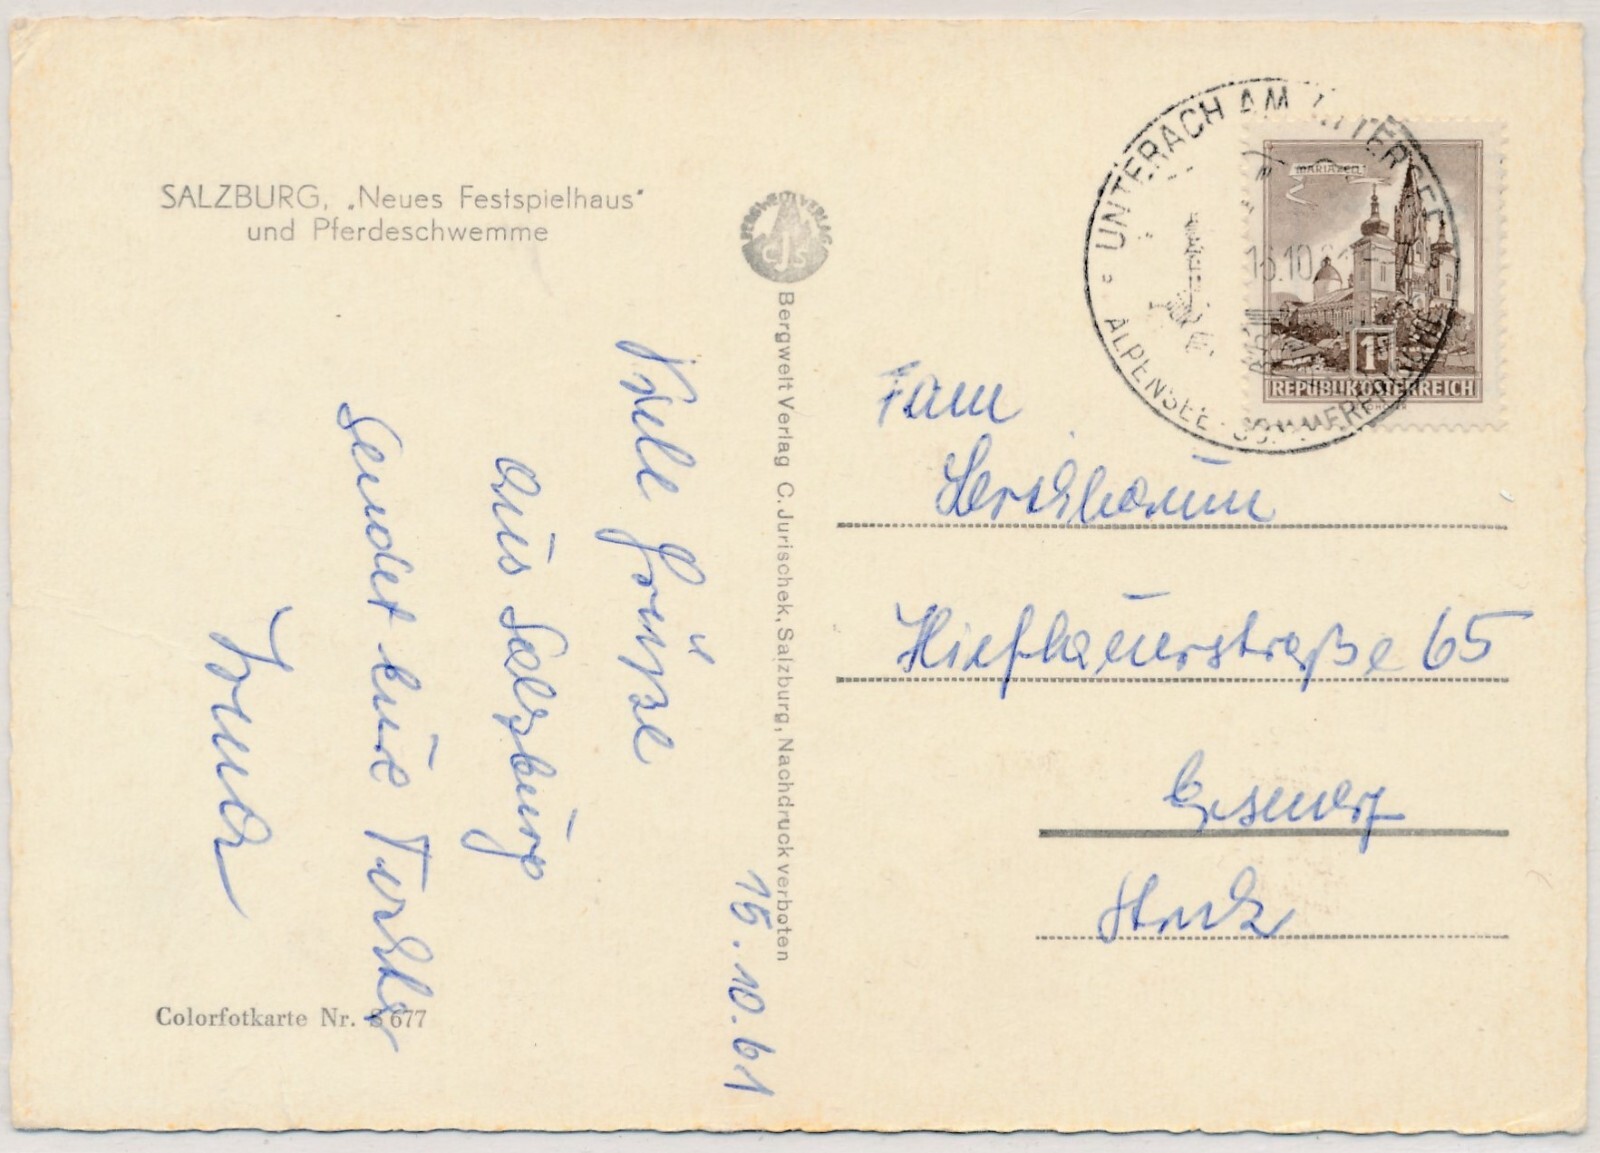 SALZBURG, „Neues Festspielhaus"
und Pferdeschwemme
Viele Grüße
aus Salzburg
sendet eure
15.10.61
Colorfotkarte Nr. S 677
BERGWELTVERLAG
CJS
Bergwelt Verlag C. Jurischek, Salzburg, Nachdruck verboten
UNTERACH AM ATTERSEE
16.10.61
ALPENSEE - SOMMERFRISCHE
MARIAZELL
1
REPUBLIK ÖSTERREICH
Fam
65